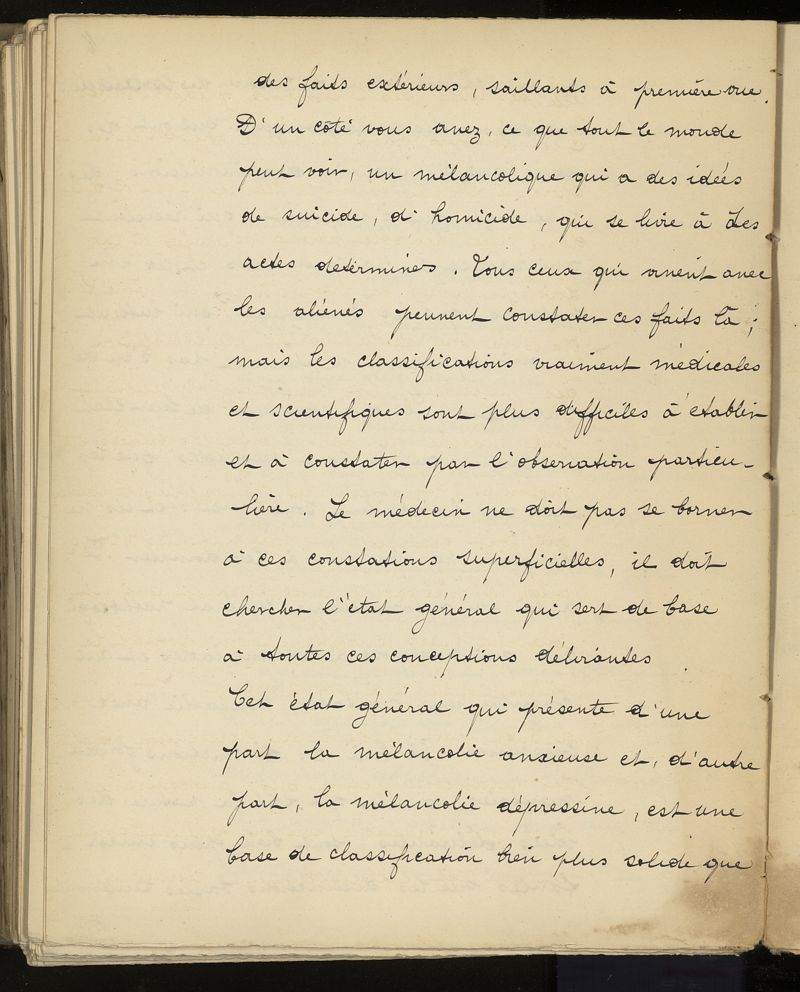 des faits extérieurs, saillants à première vue.
D'un côté vous avez, ce que tout le monde
peut voir, un mélancolique qui a des idées
de suicide, d'homicide, qui se livre à des
actes déterminés. Tous ceux qui vivent avec
les aliénés peuvent constater ces faits là;
mais les classifications vraiment médicales
et scientifiques sont plus difficiles à établir
et à constater par l'observation particu-
lière. Le médecin ne doit pas se borner
à ces constations superficielles, il doit
chercher l'état général qui sert de base
à toutes ces conceptions délirantes.
Cet état général qui présente d'une
part la mélancolie anxieuse et, d'autre
part, la mélancolie dépressive, est une
base de classification bien plus solide que